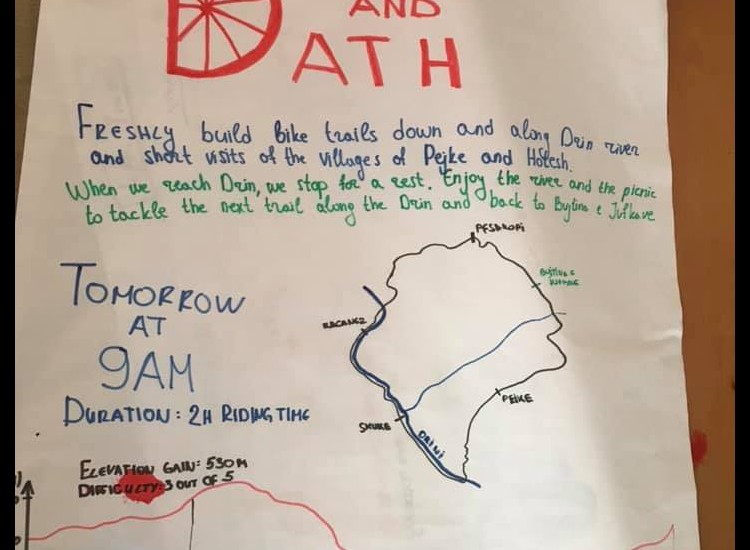 AND
DATH
FRESHLY build bike trails down and along Drin river
and short visits of the villages of Pejke and Hotesh.
When we reach Drin, we stop for a rest. Enjoy the river and the picnic
to tackle the next trail along the Drin and back to Bujtina e Jufkave
PESHKOPI
BUJTINA E
JUFKAVE
TOMORROW
AT
9AM
DURATION: 2H RIDING TIME
PEJKE
DRINI
ELEVATION GAIN: 530M
DIFFICULTY: 3 OUT OF 5